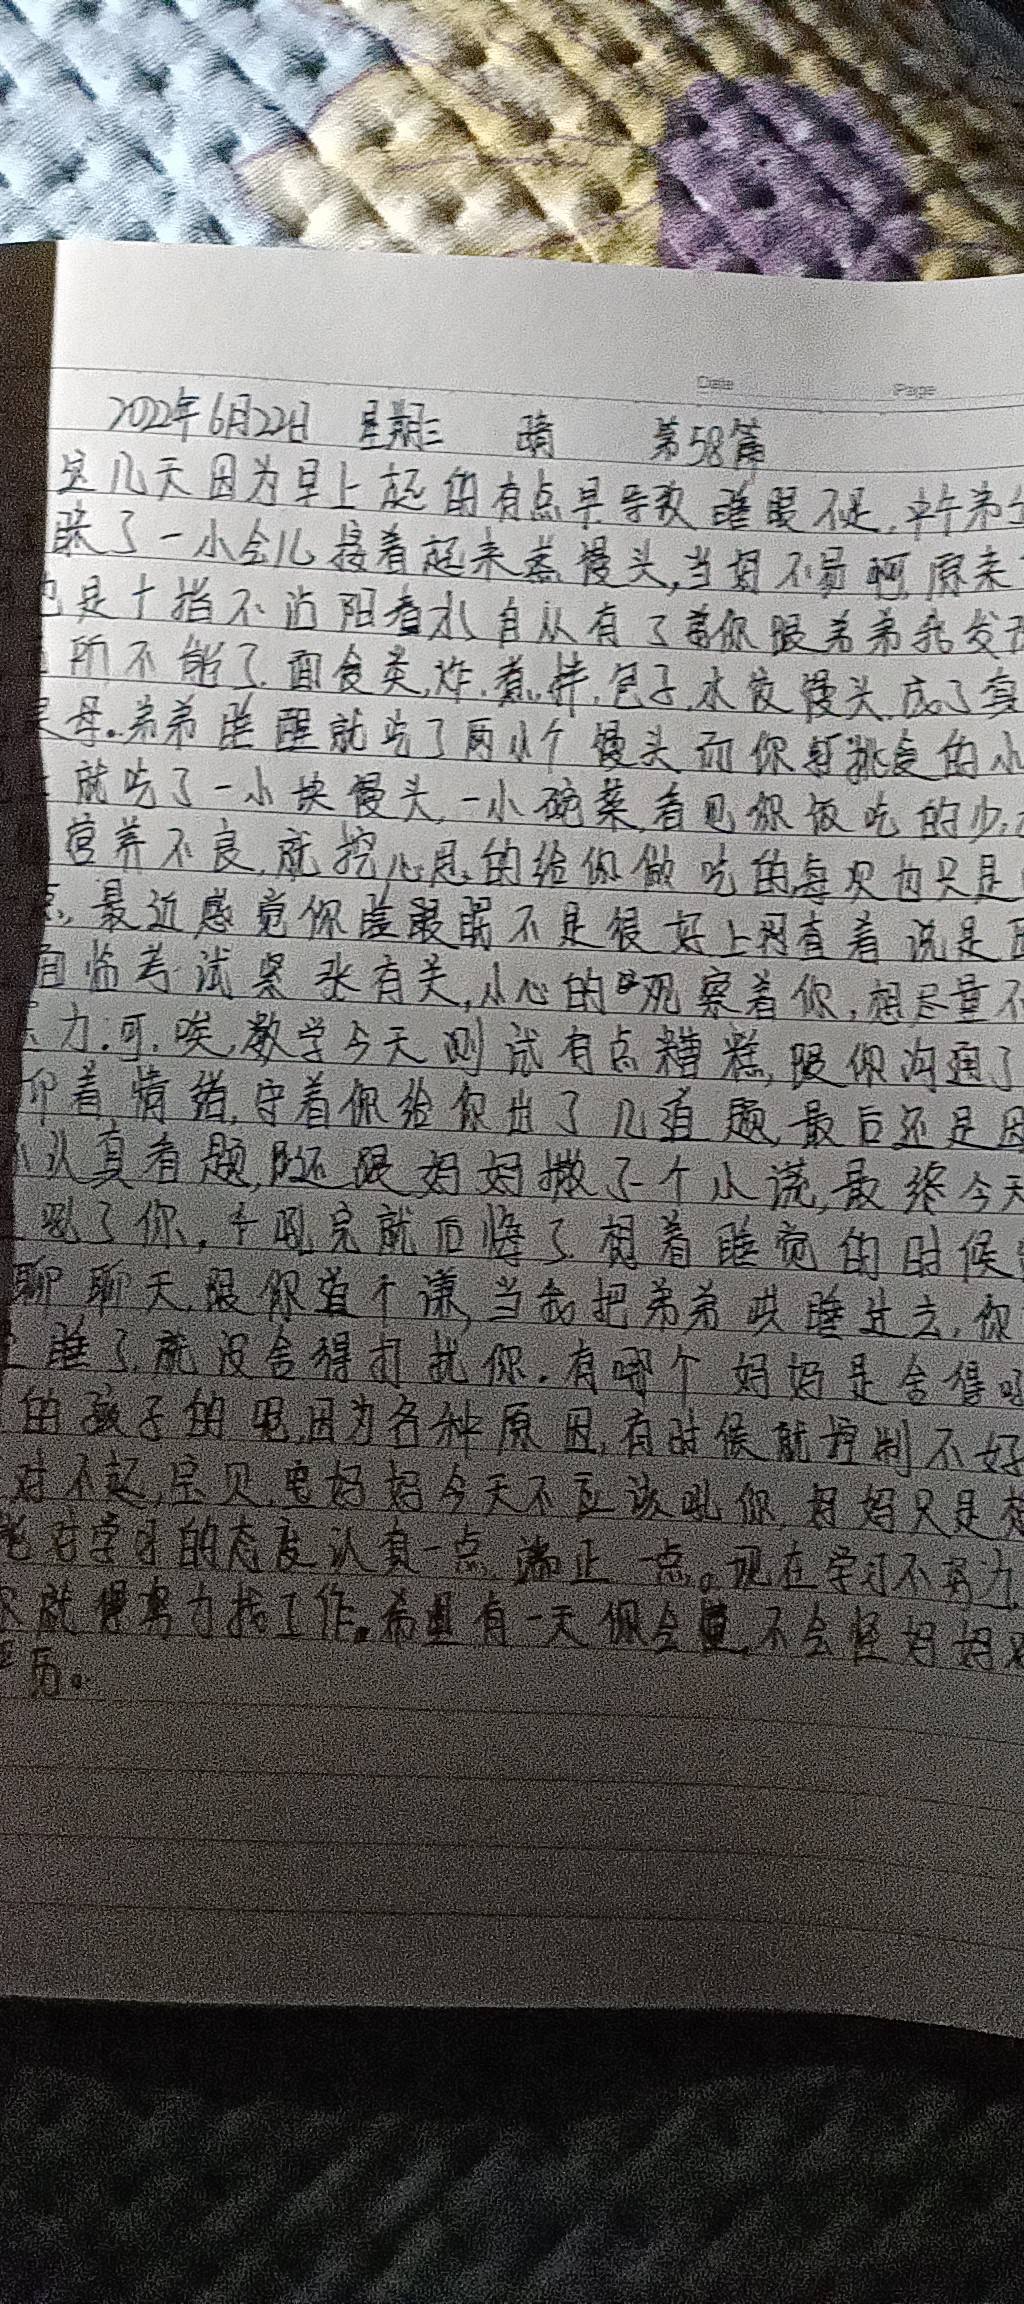 Date Page
2022年6月22日 星期三 晴 第58篇
这几天因为早上起的有点早导致睡眠不足,中午弟
眯了一小会儿接着起来蒸馒头,当妈不易啊,原来
也是十指不沾阳春水,自从有了着你跟弟弟我发
所不能了.面食类,炸.煮.拌.包子.水饺馒头.成了真
母.弟弟睡醒就吃了两小个馒头而你挑食的小
就吃了一小块馒头,一小碗菜,看见你饭吃的少,
营养不良,就挖心思的给你做吃的每次也只是
最近感觉你睡眠不是很好上网查着说是
面临考试紧张有关,小心的观察着你,想尽量不
力.可.唉,数学今天测试有点糟糕,跟你沟通了
着情绪,守着你给你出了几道题,最后还是因
认真看题,还跟妈妈撒了个小谎,最终今天
吼了你,吼完就后悔了.想着睡觉的时候
聊聊天,跟你道个谦,当我把弟弟哄睡过去,你
睡了,就没舍得打扰你.有哪个妈妈是舍得
的孩子的呢,因为各种原因,有时候就控制不好
对不起,宝贝,妈妈今天不应该吼你,妈妈只是想
学习的态度认真一点,端正一点。现在学习不努力,
就得努力找工作.希望有一天你会,不会怪妈妈对
厉。